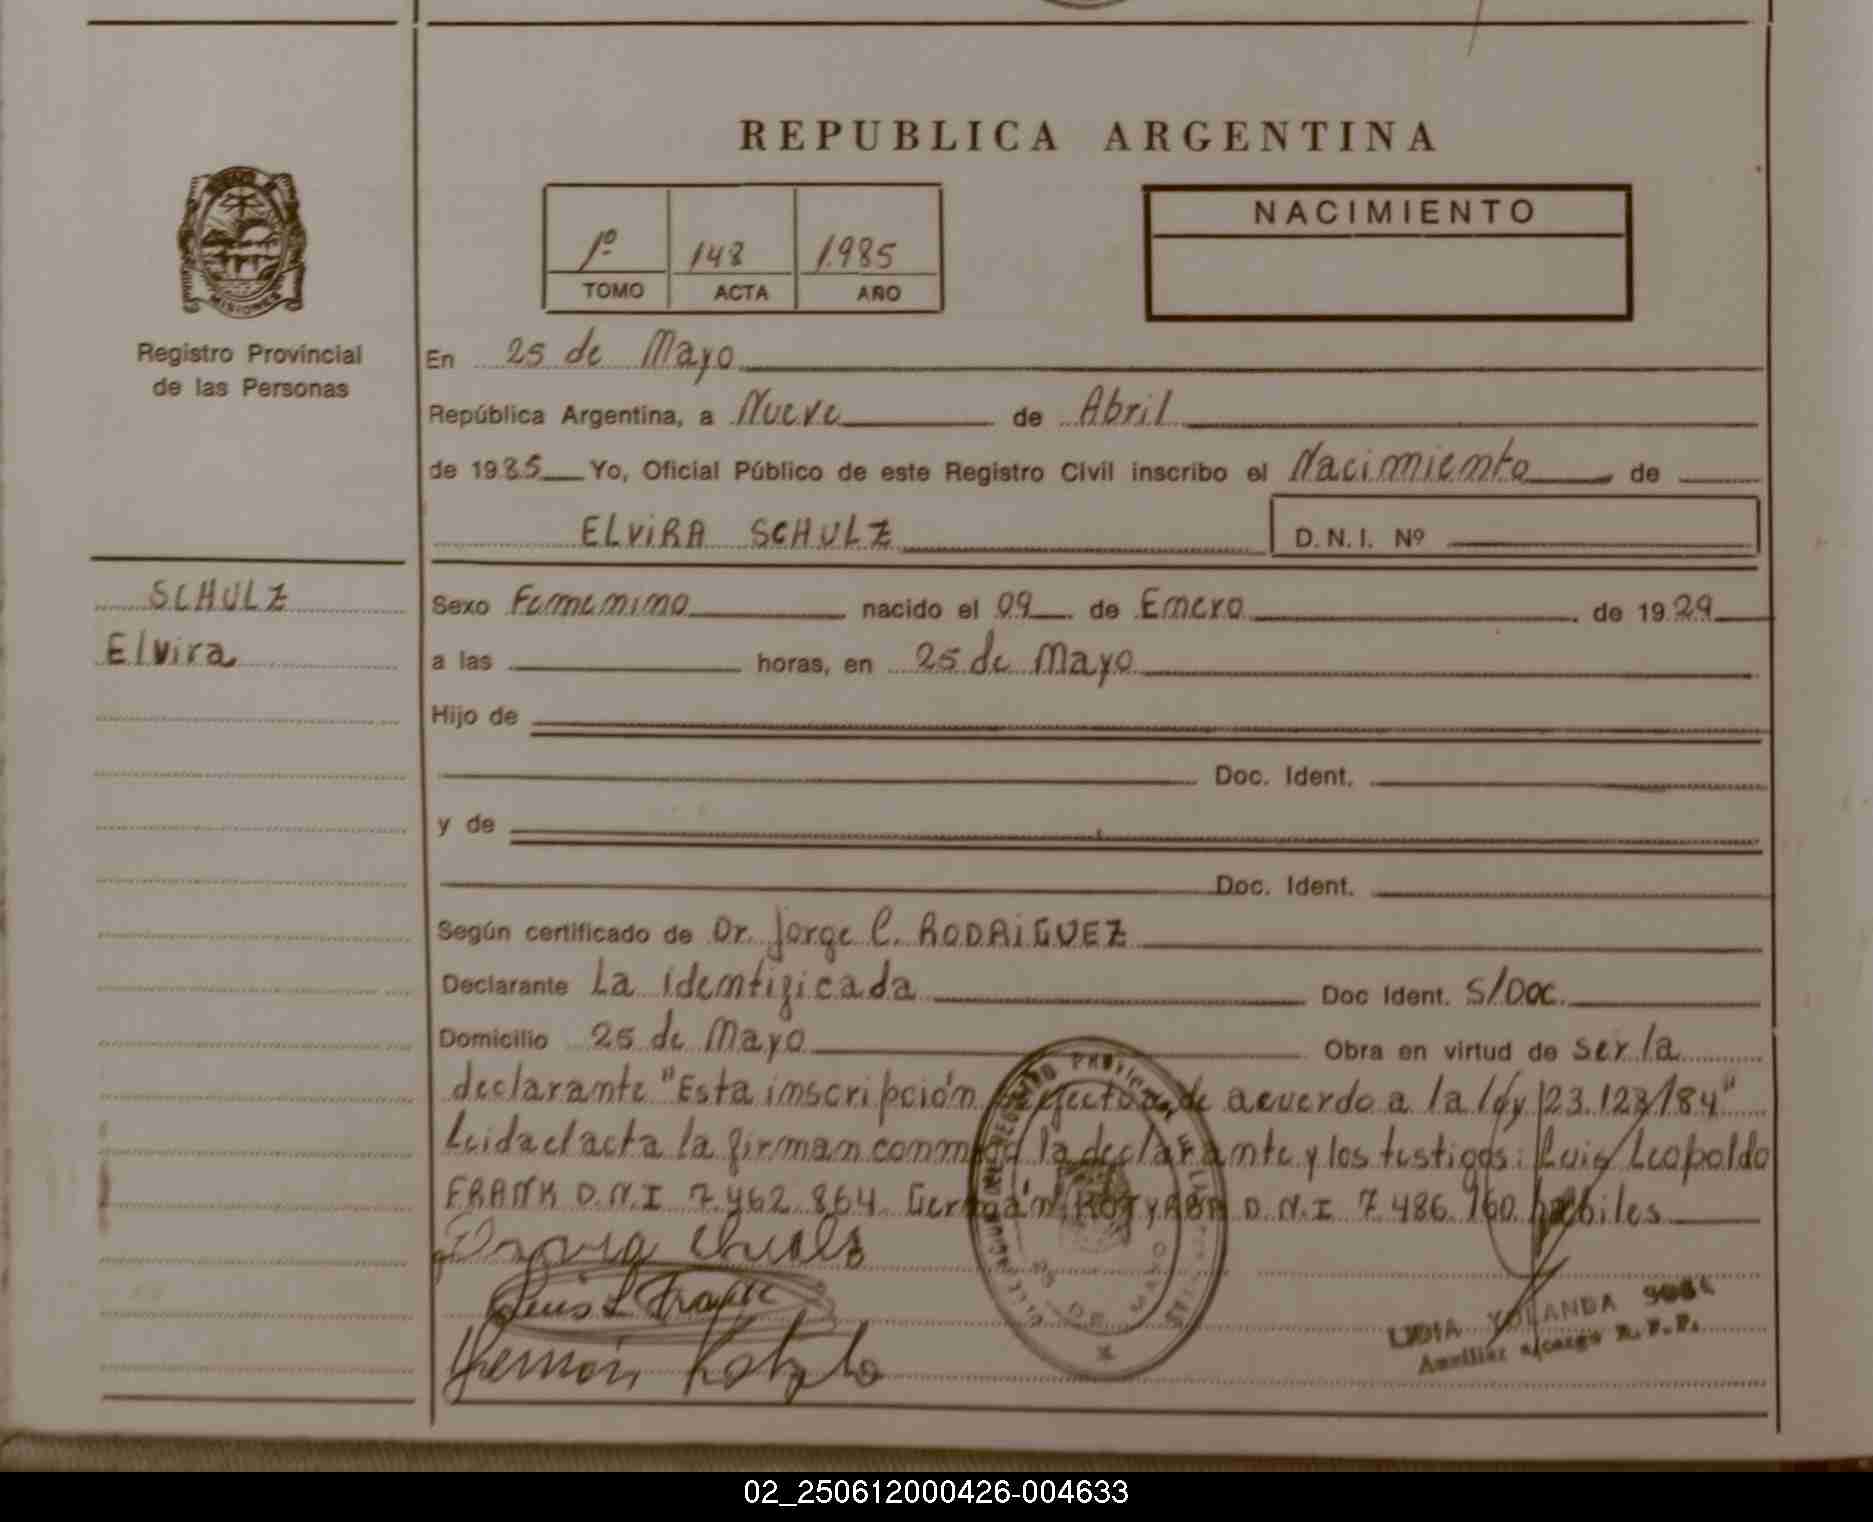 REPUBLICA ARGENTINA
NACIMIENTO
1º 148 1.985
TOMO ACTA AÑO
MISIONES
Registro Provincial
de las Personas
En 25 de Mayo
República Argentina, a Nueve de Abril
de 1985 Yo, Oficial Público de este Registro Civil inscribo el Nacimiento de
ELViRA SCHULZ D.N.I. Nº
SCHULZ
Elvira
Sexo Femenino nacido el 09 de Enero de 1929
a las horas, en 25 de Mayo
Hijo de
Doc. Ident.
y de
Doc. Ident.
Según certificado de Dr. Jorge C. RODRiGUEZ
Declarante La Identificada Doc Ident. S/Doc.
Domicilio 25 de Mayo Obra en virtud de ser la
declarante "Esta inscripción se efectua de acuerdo a la ley 23.128/84"
Leida el acta la firman conmigo la declarante y los testigos: Luis Leopoldo
FRANK D.N.I 7.462.864. Germán D.N.I 7.486.960. habiles
Luis L Frank
LIDIA YOLANDA
Auxiliar a/cargo R.P.P.
02_250612000426-004633